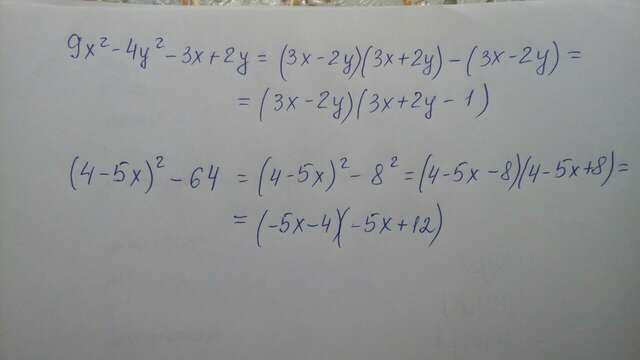 9x² - 4y² - 3x + 2y = (3x - 2y)(3x + 2y) - (3x - 2y) =
= (3x - 2y)(3x + 2y - 1)
(4 - 5x)² - 64 = (4 - 5x)² - 8² = (4 - 5x - 8)(4 - 5x + 8) =
= (-5x - 4)(-5x + 12)